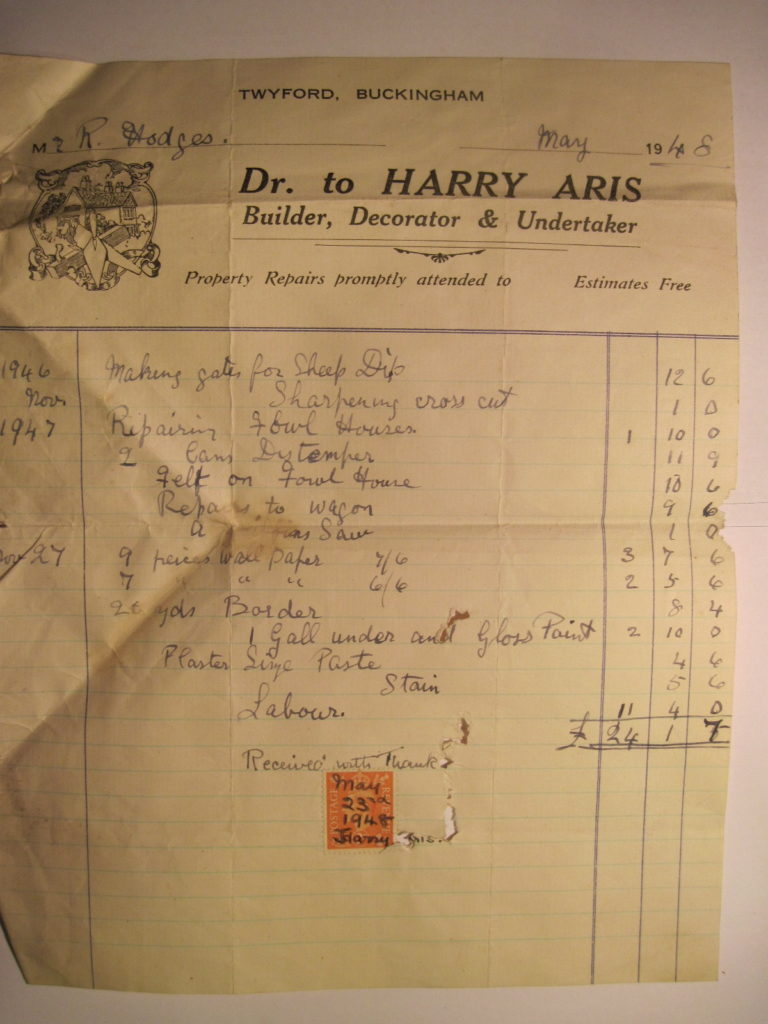 TWYFORD, BUCKINGHAM
Mr R. Hodges. May 1948
Dr. to HARRY ARIS
Builder, Decorator & Undertaker
Property Repairs promptly attended to Estimates Free
1946 Making gates for Sheep Dip 12 6
Nov Sharpening cross cut 1 0
1947 Repairing Fowl Houses 1 10 0
2 Cans Distemper 11 9
Felt on Fowl House 10 6
Repairs to wagon 9 6
A Saw 1 0
Nov 27 9 peices wall paper 7/6 3 7 6
7 " " 6/6 2 5 6
yds Border 8 4
1 Gall under and Gloss Paint 2 10 0
Plaster Size Paste 4 6
Stain 5 6
Labour. 11 4 0
£ 24 1 7
Received with Thanks
POSTAGE REVENUE
May
23rd
1948
Harry Aris.